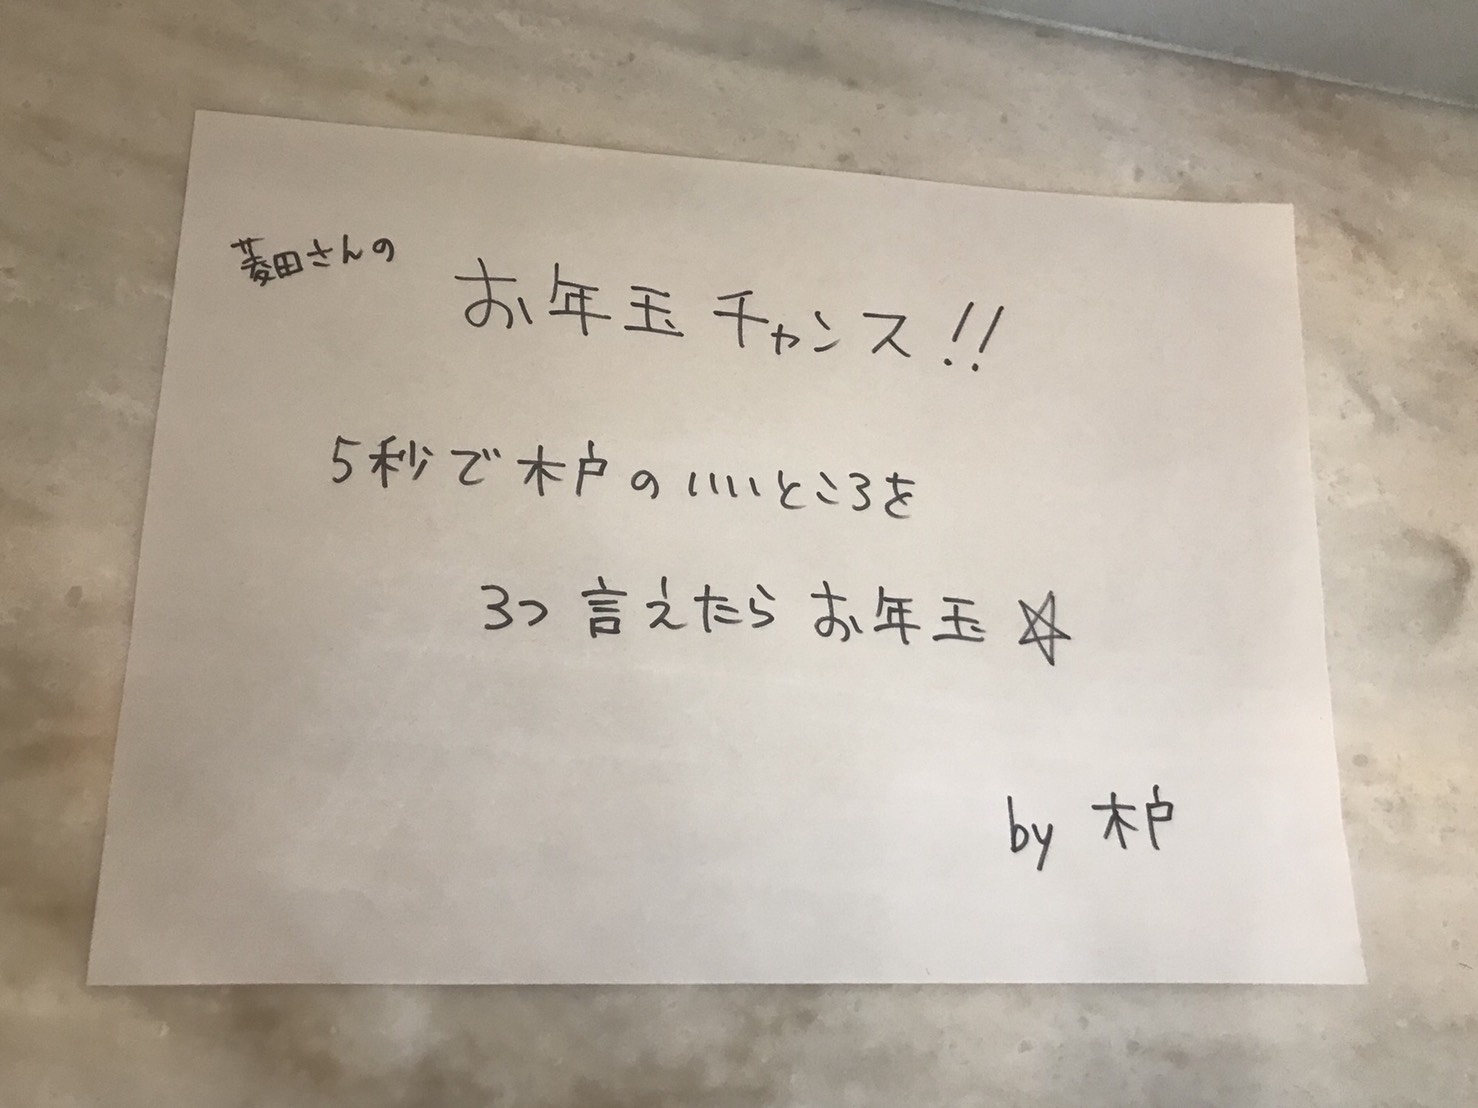 菱田さんの
お年玉チャンス!!
5秒で木戸のいいところを
3つ言えたらお年玉☆
by 木戸